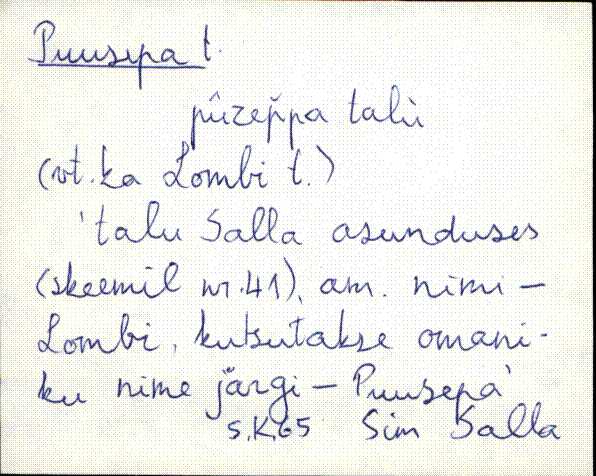 Puusepa t.
pûzep̌pa talù
(vt. ka Lombi t.)
'talu Salla asunduses
(skeemil nr. 41), am. nimi -
Lombi, kutsutakse omani-
ku nime järgi - Puusepa'
S.K.65 Sim Salla